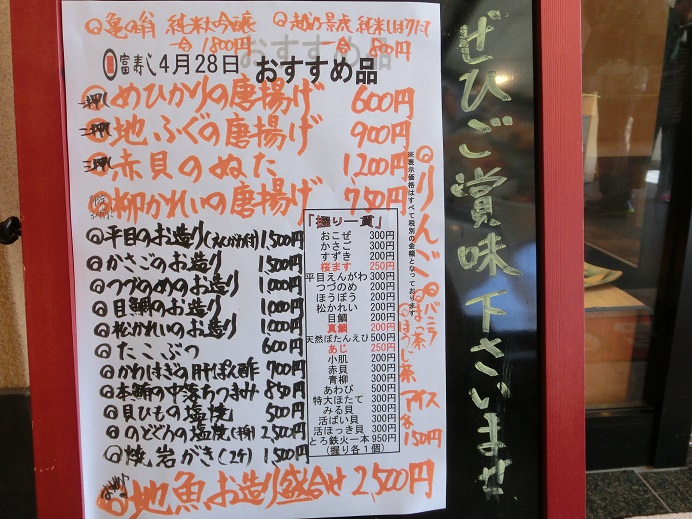 ◎亀の翁 純米大吟醸
一合 1800円
◎越乃景虎 純米しぼりたて
一合 800円
富寿し 4月28日 おすすめ品
一押し めひかりの唐揚げ 600円
二押し 地ふぐの唐揚げ 900円
三押し 赤貝のぬた 1,200円
◎柳かれいの唐揚げ 750円
◎平目のお造り(えんがわ付) 1,500円
◎かさごのお造り 1,500円
◎つづのめのお造り 1,000円
◎目鯛のお造り 1,000円
◎松かれいのお造り 1,000円
◎たこぶつ 600円
◎かわはぎの肝ぽん酢 700円
◎本鮪の中落ちつまみ 850円
◎貝ひもの塩焼 500円
◎のどぐろの塩焼(半身) 2,500円
◎焼岩がき(2ヶ) 1,500円
◎地魚お造り盛合せ 2,500円
「握り一貫」
おこぜ 300円
かさご 300円
すずき 200円
桜ます 250円
平目えんがわ 300円
つづのめ 200円
ほうぼう 200円
松かれい 200円
目鯛 200円
真鯛 200円
天然ぼたんえび 500円
あじ 250円
小肌 200円
赤貝 300円
青柳 200円
あわび 500円
特大ほたて 300円
みる貝 300円
活ばい貝 300円
活ほっき貝 300円
とろ鉄火一本 950円
(握り各1個)
※表示価格はすべて税別の金額となっております
◎りんご
◎バニラ
◎抹茶
◎ほうじ茶
アイス
各
150円
ぜひご賞味下さいませ